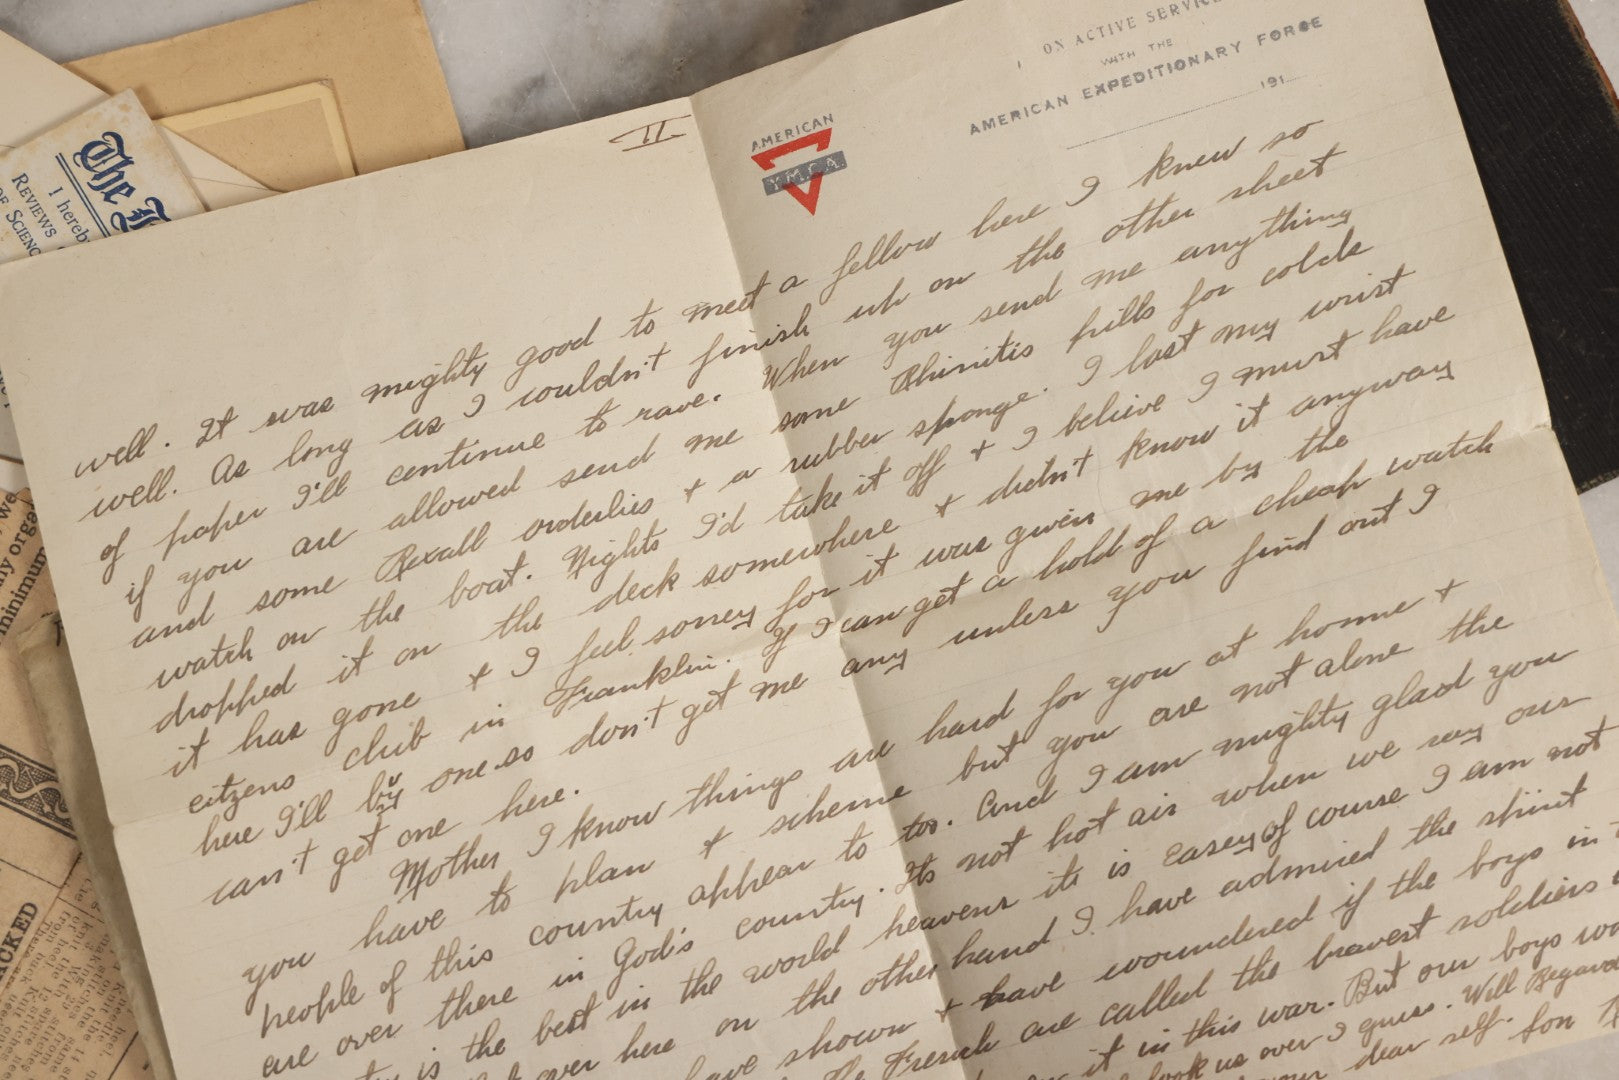 ON ACTIVE SERVICE
WITH THE
AMERICAN EXPEDITIONARY FORCE
191
AMERICAN
Y.M.C.A.
II
well. It was mighty good to meet a fellow here I knew so
well. As long as I couldn't finish up on the other sheet
of paper I'll continue to rave. When you send me anything
if you are allowed send me some Rhinitis pills for colds
and some Rexall orderlies + a rubber sponge. I lost my wrist
watch on the boat. Nights I'd take it off + I believe I must have
dropped it on the deck somewhere + didn't know it anyway
it has gone + I feel sorrey for it was given me by the
citzens club in Franklin. If I can get a hold of a cheap watch
here I'll buy one so don't get me any unless you find out I
can't get one here.
Mother I know things are hard for you at home +
you have to plan + scheme but you are not alone the
people of this country appear to too. And I am mighty glad you
are over there in God's country. Its not hot air when we say our
is the best in the world heavens its is easey of course I am not
over here on the other hand I have admired the spirit
have shown + have woundered if the boys in
The French are called the bravest soldiers
it in this war. But our boys
look us over I guess. Will
your dear self. for
The
REVIEWS
I hereb
OF SCIENC
we
ny orga
minimum
ACKED